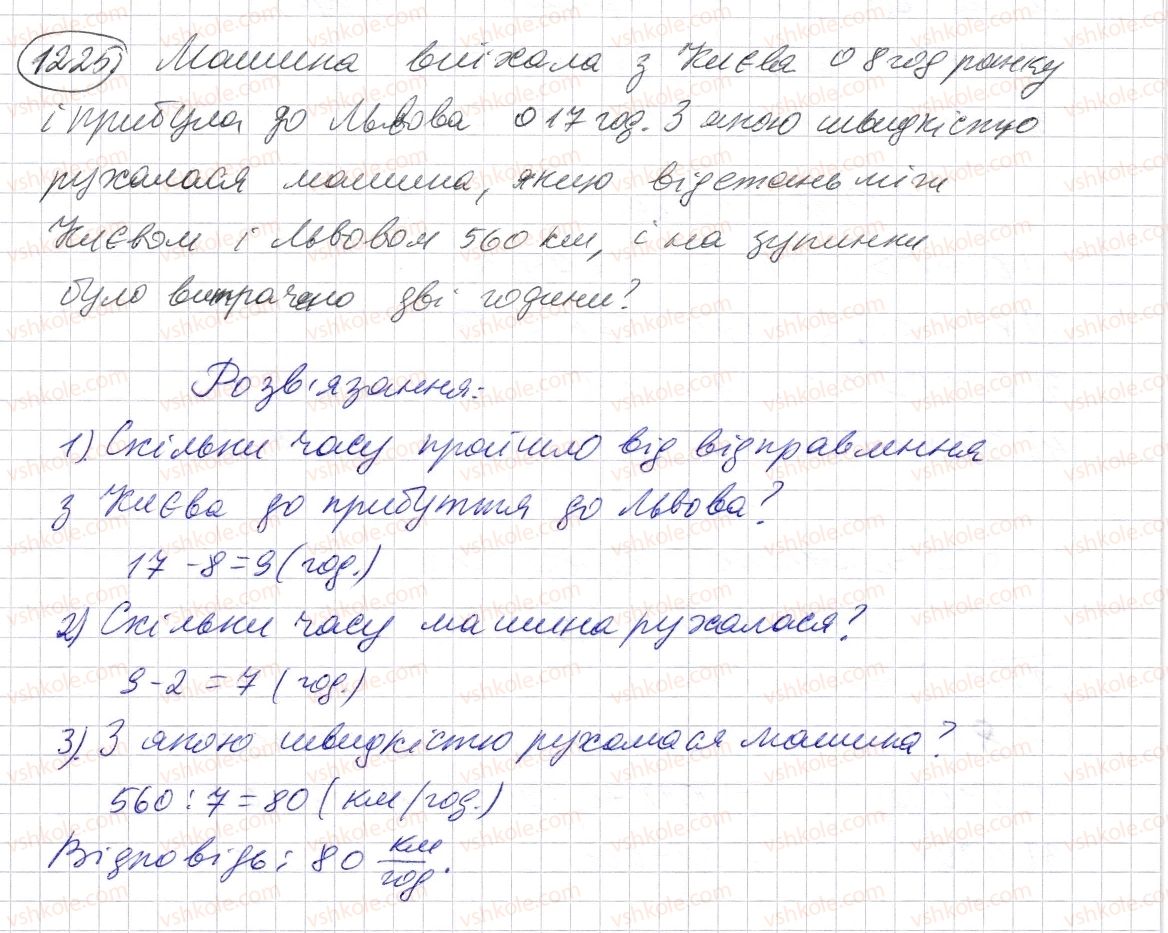 1225) Машина виїхала з Києва о 8 год ранку
і прибула до Львова о 17 год. З якою швидкістю
рухалася машина, якщо відстань між
Києвом і Львовом 560 км, і на зупинки
було витрачено дві години?
Розв'язання:
1) Скільки часу пройшло від відправлення
з Києва до прибуття до Львова?
17 - 8 = 9 (год.)
2) Скільки часу машина рухалася?
9 - 2 = 7 (год.)
3) З якою швидкістю рухалася машина?
560 : 7 = 80 (км/год.)
Відповідь: 80 км/год.